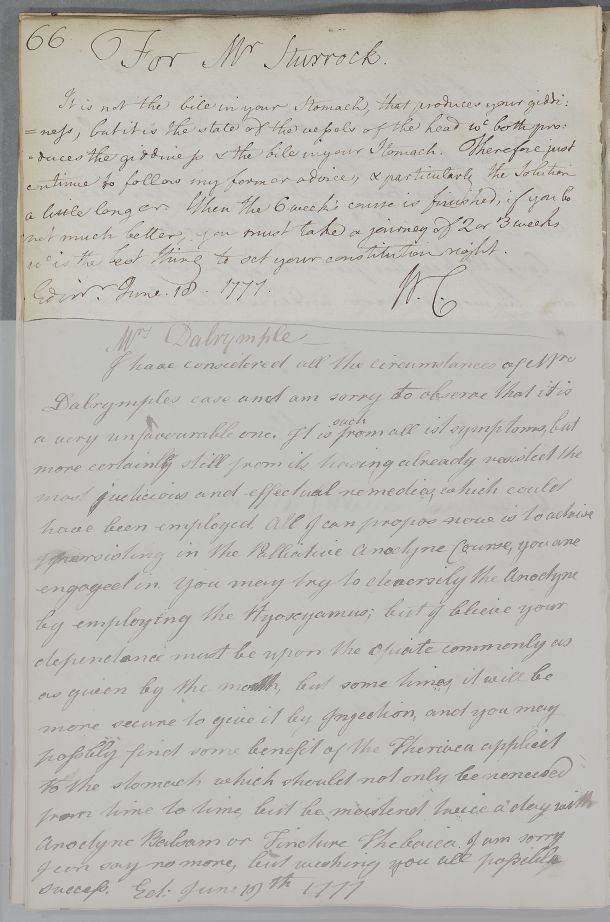 66
For Mr Sturrock.
It is not the bile in your Stomach, that produces your giddi:
=ness, but it is the state of the vessels of the head wc both pro:
-duces the giddiness & the bile in your Stomach. Therefore just
continue to follow my former advice, & particularly the Solution
a little longer. When the 6 week's course is finished, if you be
not much better, you must take a journey of 2 or 3 weeks
wc is the best thing to set your constitution right.
Edinr. June. 18. 1777. W. C
Mrs Dalrymple
I have considered all the circumstances of Mrs
Dalrymples case and am sorry to observe that it is
a very unfavourable one. It is such from all ist symptoms, but
more certainly still from its having already resisted the
most judicious and effectual remedies, which could
have been employed. All I can propos now is to advise
persisting in the Palliative Anodyne Course, you are
engaged in. You may try to diversily the Anodyne
by employing the Hyoscyamus; but I blieve your
dependance must be upon the Opiate commonly as
as given by the mouth, but some times, it will be
more secure to give it by Injection, and you may
possibly find some benefit of the Theriaca applied
to the stomach which should not only be renewed
from time to time, but be moistend twice a day with
Anodyne Balsam or Tincture Thebaica. I am sorry
I can say no more, but wishing you all possible
success. Ed: June 19th 1777